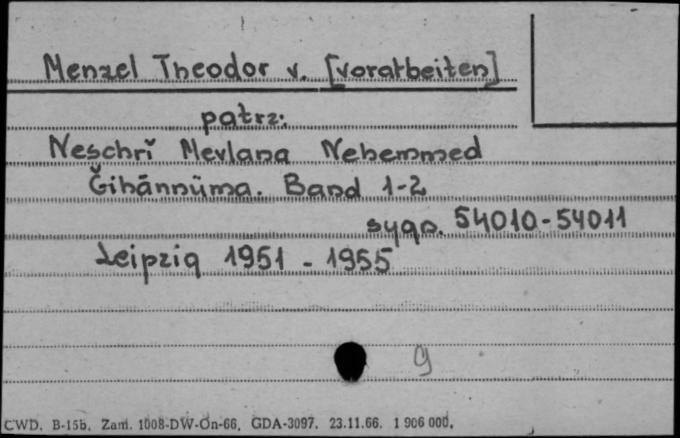 Menzel Theodor v. [vorarbeiten]
patrz:
Neschrĭ Mevlana Nehemmed
Ğihānnüma. Band 1-2
sygn. 54010-54011
Leipzig 1951 - 1955
g
CWD. B-15b. Zam. 1008-DW-On-66. GDA-3097. 23.11.66. 1 906 000.